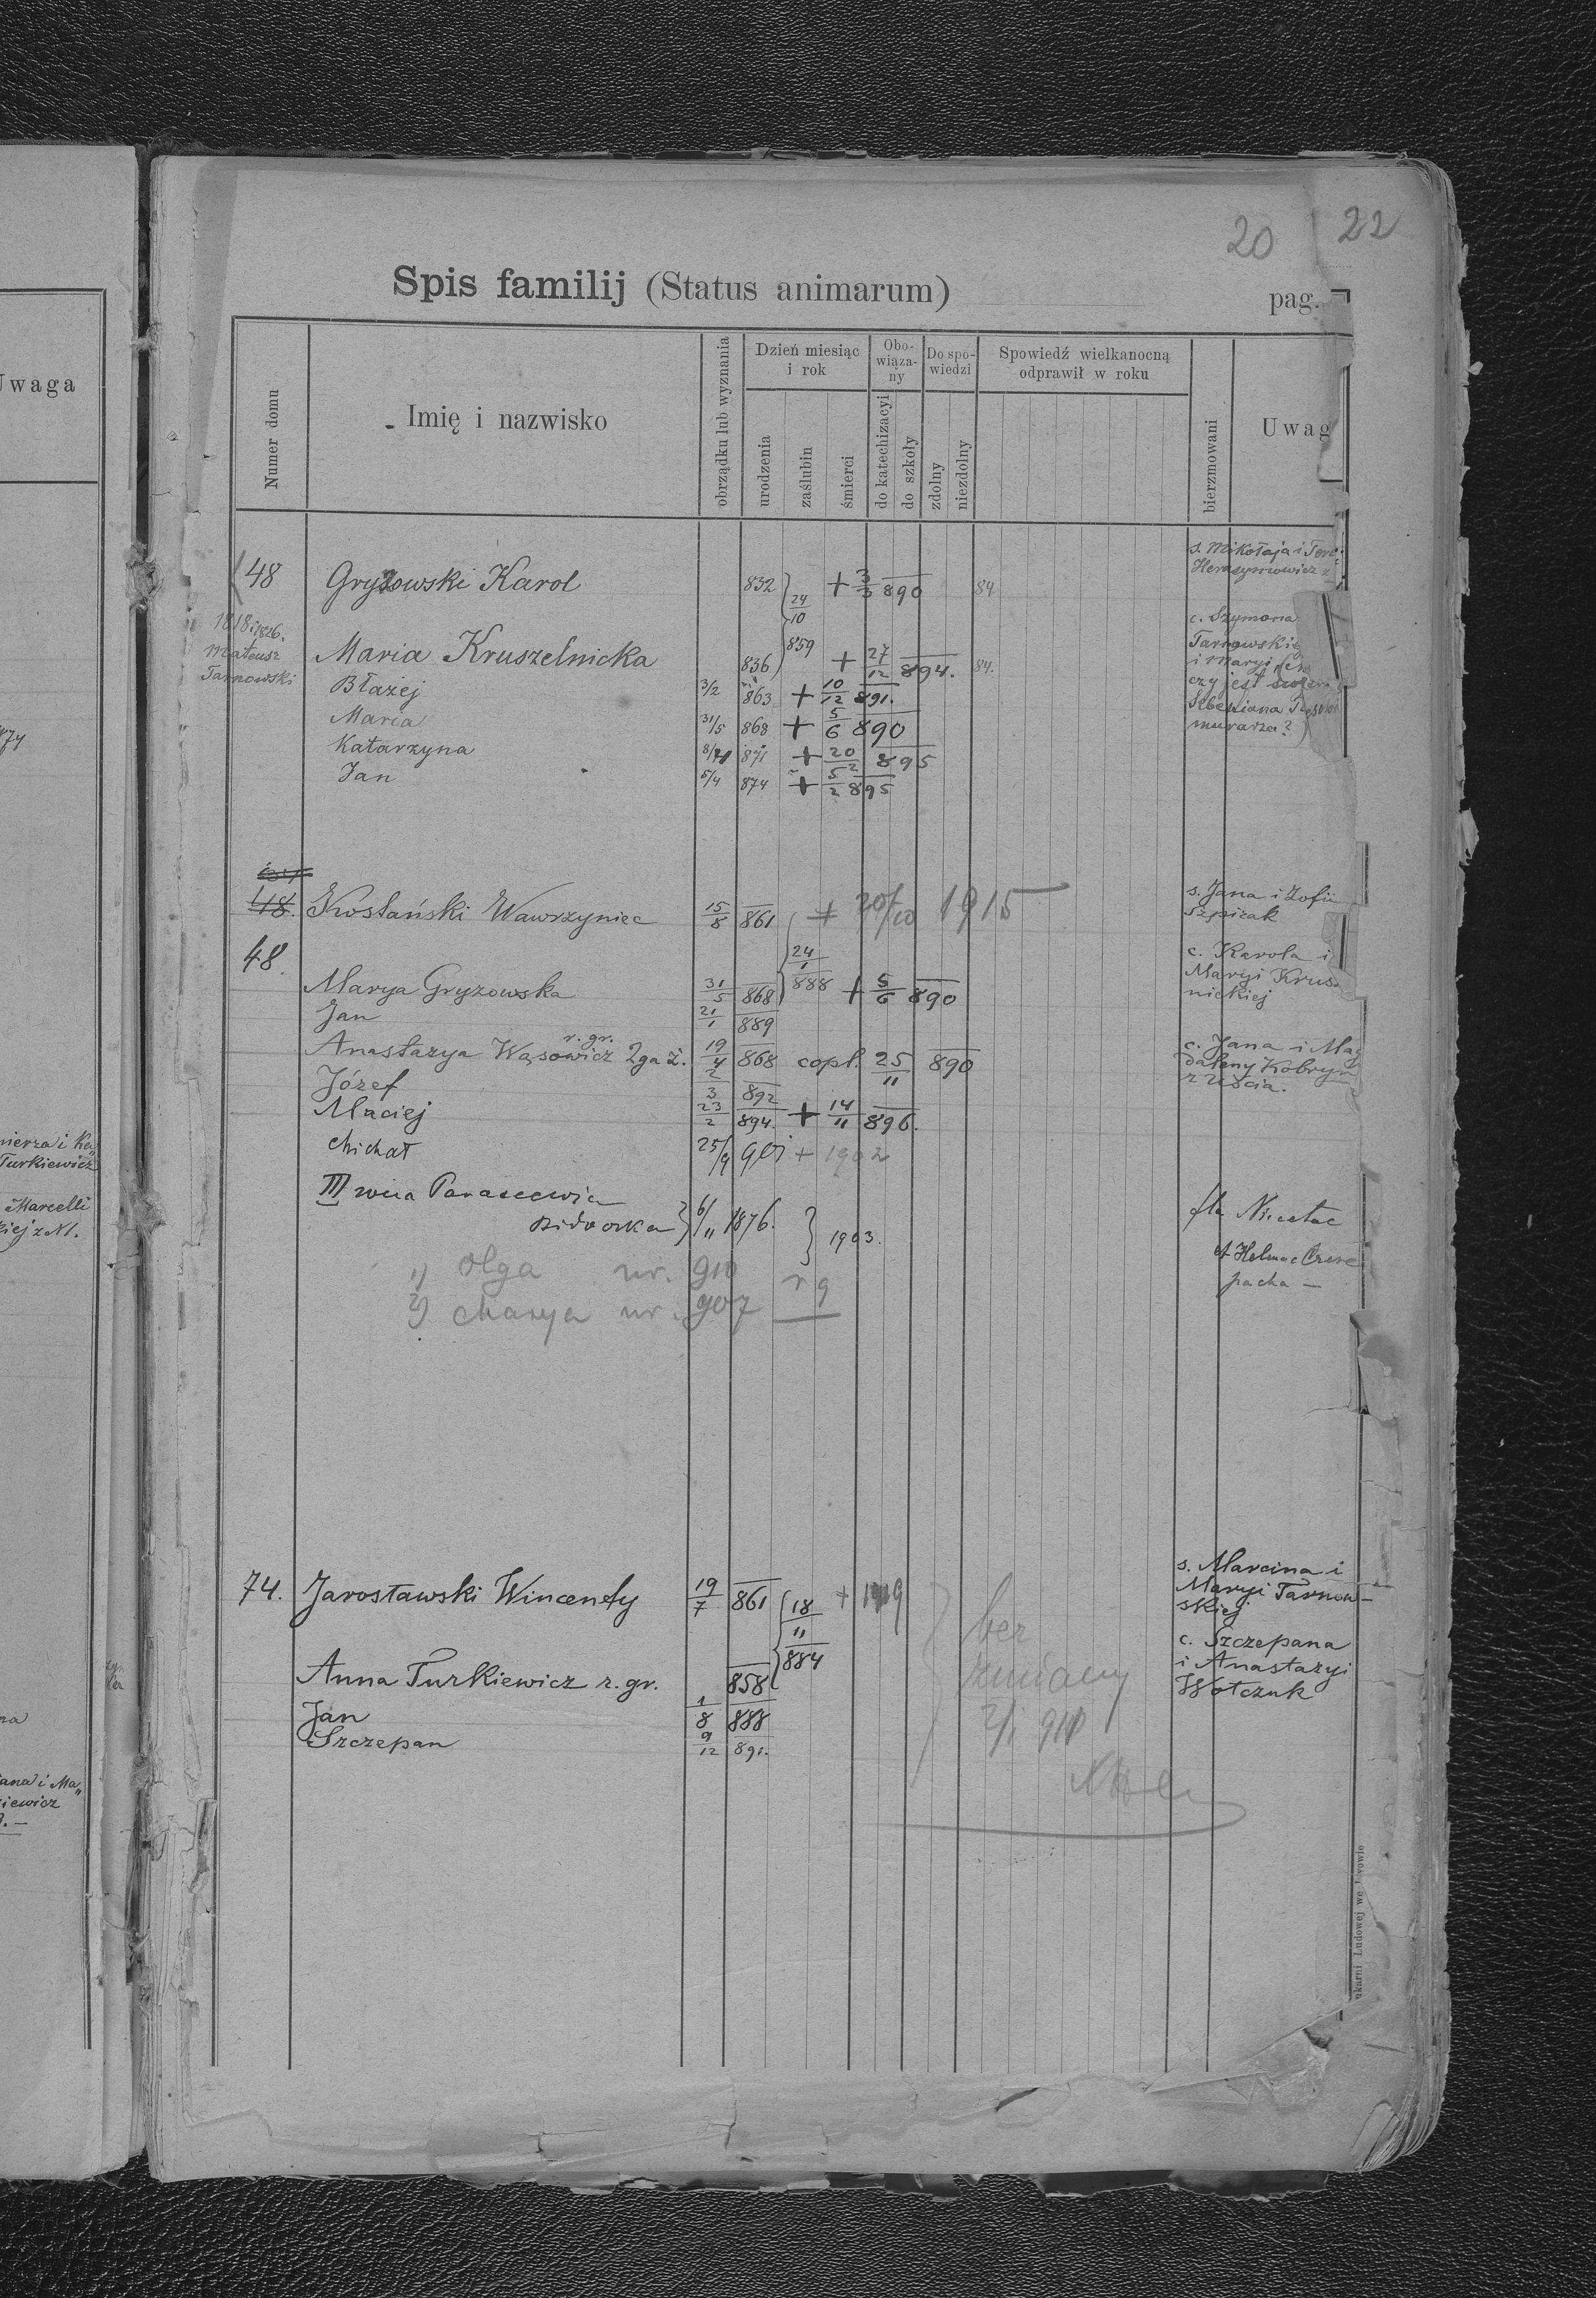 20 22
Spis familij (Status animarum) pag.
Uwaga
Numer domu
Imię i nazwisko
obrządku lub wyznania
Dzień miesiąc i rok
urodzenia
zaślubin
śmierci
Obo-
wiąza-
ny
do katechizacyi
do szkoły
Do spo-
wiedzi
zdolny
niezdolny
Spowiedź wielkanocną
odprawił w roku
bierzmowani
Uwag
48 Gryzowski Karol 832 24/10 859 + 3/3 890 84
s. Mikołaja i
Herasymowicz
1818 i 1826.
Mateusz
Tarnowski
Maria Kruszelnicka 836 + 27/12 894. 84.
c. Szymona
Tarnowskie
i Maryi
czy jest
murarza?)
Błażej 3/2 863 + 10/12 891.
Maria 31/5 868 + 5/6 890
Katarzyna 871 + 20/2 895
Jan 5/4 874 + 5/2 895
48. Wawrzyniec 15/8 861 + 20/10 1915
s. Jana i Zofii
Szpirak
48. 24/1 888
Marya Gryzowska 31/5 868 + 5/6 890
c. Karola i
Maryi Krus
nickiej
Jan 21/1 889
Anastazya Wąsowicz r. gr. 2ga ż. 19/4 868 copl. 25/11 890
c. Jana i Mag
daleny Kobryn
z Uścia.
Józef 2/3 892
Maciej 23/2 894. + 14/11 896.
Michał 25/9 901 + 1902
III żona
6/11 1876. } 1903.
1) Olga ur. 910 r g
2) Marya ur. 907
74. Jarosławski Wincenty 19/7 861 18/11 884 + 1919
s. Marcina i
Maryi Tarnow-
skiej
Anna Turkiewicz r. gr. 858
c. Szczepana
i Anastazyi
Wołczuk
Jan 1/8 888
Szczepan 9/12 891.
bez
zmiany
ukarni Ludowej we Lwowie
Turkiewicz
Marcelli
kiej z N.
iewicz